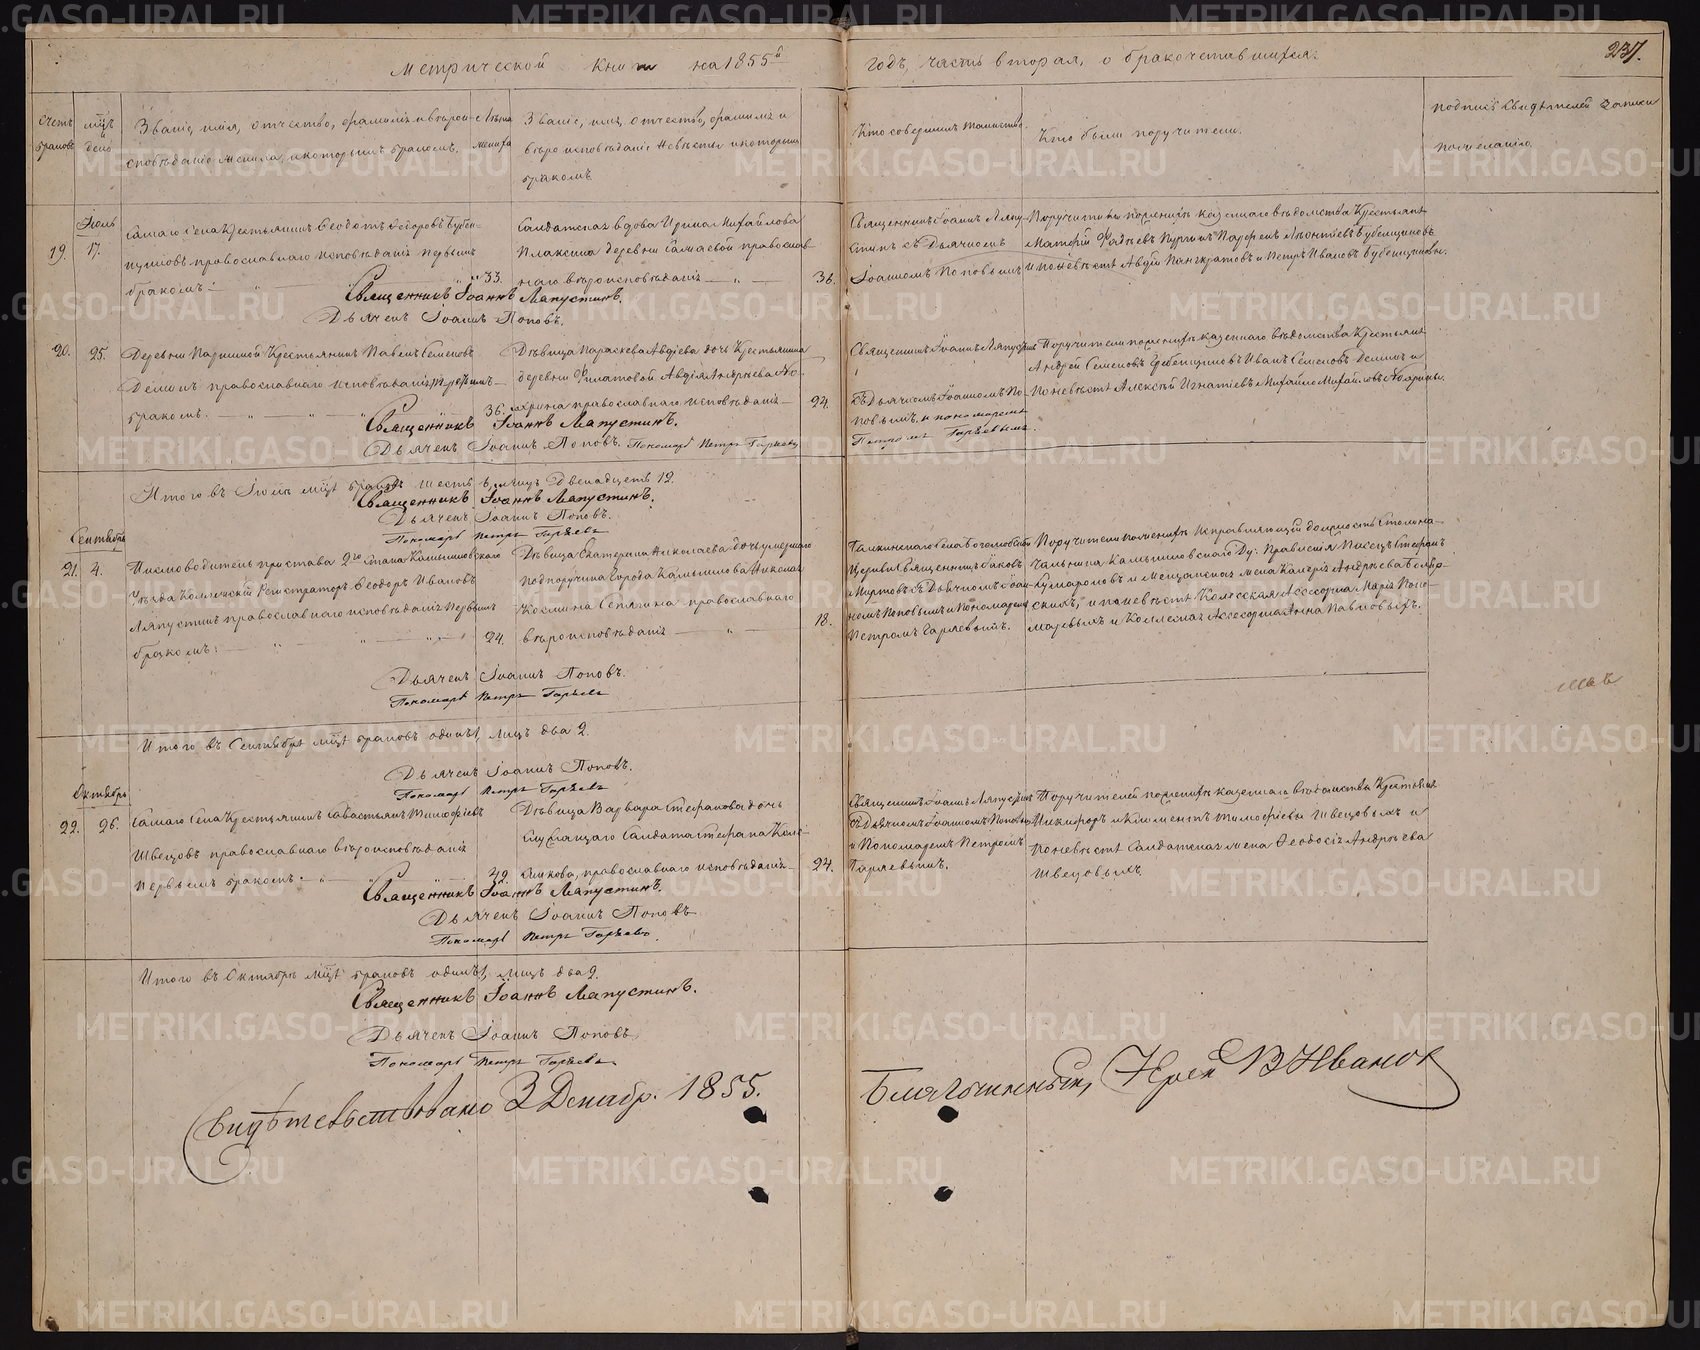 Метрической книги на 1855й годъ, часть вторая, о бракосочетавшихся.
237.
Счетъ браковъ
мѣсяцъ и день
Званіе, имя, отчество, фамилія и вѣро-
исповѣданіе жениха, и которымъ бракомъ.
лѣта жениха
Званіе, имя, отчество, фамилія и
вѣроисповѣданіе невѣсты и которымъ
бракомъ
Кто совершилъ таинство.
Кто были поручители.
подпись свидѣтелей записи
по желанію.
Іюль
19. 17.
Самаго села крестьянинъ Ѳеодотъ Ѳедоровъ Бубен-
щиковъ православнаго исповѣданія первымъ
бракомъ.
33.
Солдатская вдова Ирина Михайлова
Плаксина деревни православ-
наго вѣроисповѣданія
36.
Священникъ Іоаннъ Ляпу-
стинъ съ Дьячкомъ
Іоанномъ Поповымъ
Поручители по женихѣ казеннаго вѣдомства крестьяне
Матѳей Пургинъ Парѳенъ Леонтіевъ Бубенщиковъ
и по невѣстѣ Авдѣй Панкратовъ и Петръ Ивановъ Бубенщиковы.
Священникъ Іоаннъ Ляпустинъ.
Дьячекъ Іоаннъ Поповъ.
20. 25.
Деревни крестьянинъ Павелъ Семеновъ
Деминъ православнаго исповѣданія третьимъ
бракомъ.
36.
Дѣвица Параскева Авдіева дочь крестьянина
деревни Филатовой Авдія Андреева Но-
хрина православнаго исповѣданія
24.
Священникъ Іоаннъ Ляпустинъ
съ Дьячкомъ Іоанномъ По-
повымъ и пономаремъ
Петромъ Горяевымъ.
Поручители по женихѣ казеннаго вѣдомства крестьяне
Андрей Семеновъ Гребенщиковъ Иванъ Семеновъ Деминъ и
по невѣстѣ Алексѣй Игнатіевъ Михайло Михайловъ Нохрины.
Священникъ Іоаннъ Ляпустинъ.
Дьячекъ Іоаннъ Поповъ. Пономарь Петръ Горяевъ
Итого въ Іюлѣ мѣсяцѣ браковъ шесть 6, лицъ Двенадцеть 12.
Священникъ Іоаннъ Ляпустинъ.
Дьячекъ Іоаннъ Поповъ.
Пономарь Петръ Горяевъ
Сентябрь
21. 4.
Писмоводитель пристава 2го Стана Камышловскаго
Уѣзда Колежскій Регистраторъ Ѳеодоръ Ивановъ
Ляпустинъ православнаго исповѣданія первымъ
бракомъ:
24.
Дѣвица Екатерина Николаева дочь умершаго
подпоручика города Камышлова Николая
Космина православнаго
вѣроисповѣданія
18.
Священникъ
съ Дьячкомъ Іоан-
номъ Поповымъ и Пономаремъ
Петромъ Горяевымъ.
Поручители по женихѣ Исправляющій должность Столона-
чальника Камышловскаго Ду: Правленія Писецъ Стефанъ
и Мещанская жена Андреева
и по невѣстѣ Колежская Ассесорша Марія Поно-
марева и Колежская Ассесорша Анна
Дьячекъ Іоаннъ Поповъ.
Пономарь Петръ Горяевъ
Итого въ Сентябрѣ мѣсяцѣ браковъ одинъ 1, лицъ два 2.
Дьячекъ Іоаннъ Поповъ.
Пономарь Петръ Горяевъ
Октябрь
22. 26.
Самаго села крестьянинъ Савастьянъ Тимоѳіевъ
Швецовъ православнаго вѣроисповѣданія
первымъ бракомъ.
49
Дѣвица Варвара Стефанова дочь
служащаго Солдата Стефана
православнаго исповѣданія
24.
Священникъ Іоаннъ Ляпустинъ
съ Дьячкомъ Іоанномъ Поповымъ
и Пономаремъ Петромъ
Горяевымъ.
Поручители по женихѣ казеннаго вѣдомства крестьяне
Никифоръ и Климентъ Тимоѳіевы Швецовы и
по невѣстѣ солдатская жена Ѳеодосія Андреева
Швецовыхъ
Священникъ Іоаннъ Ляпустинъ.
Дьячекъ Іоаннъ Поповъ
Пономарь Петръ Горяевъ
Итого въ Октябрѣ мѣсяцѣ браковъ одинъ 1, лицъ два 2.
Священникъ Іоаннъ Ляпустинъ.
Дьячекъ Іоаннъ Поповъ
Пономарь Петръ Горяевъ
Свидѣтельствовано 3 Декабр. 1855.
Благочинный, Іерей В Иванов
METRIKI.GASO-URAL.RU